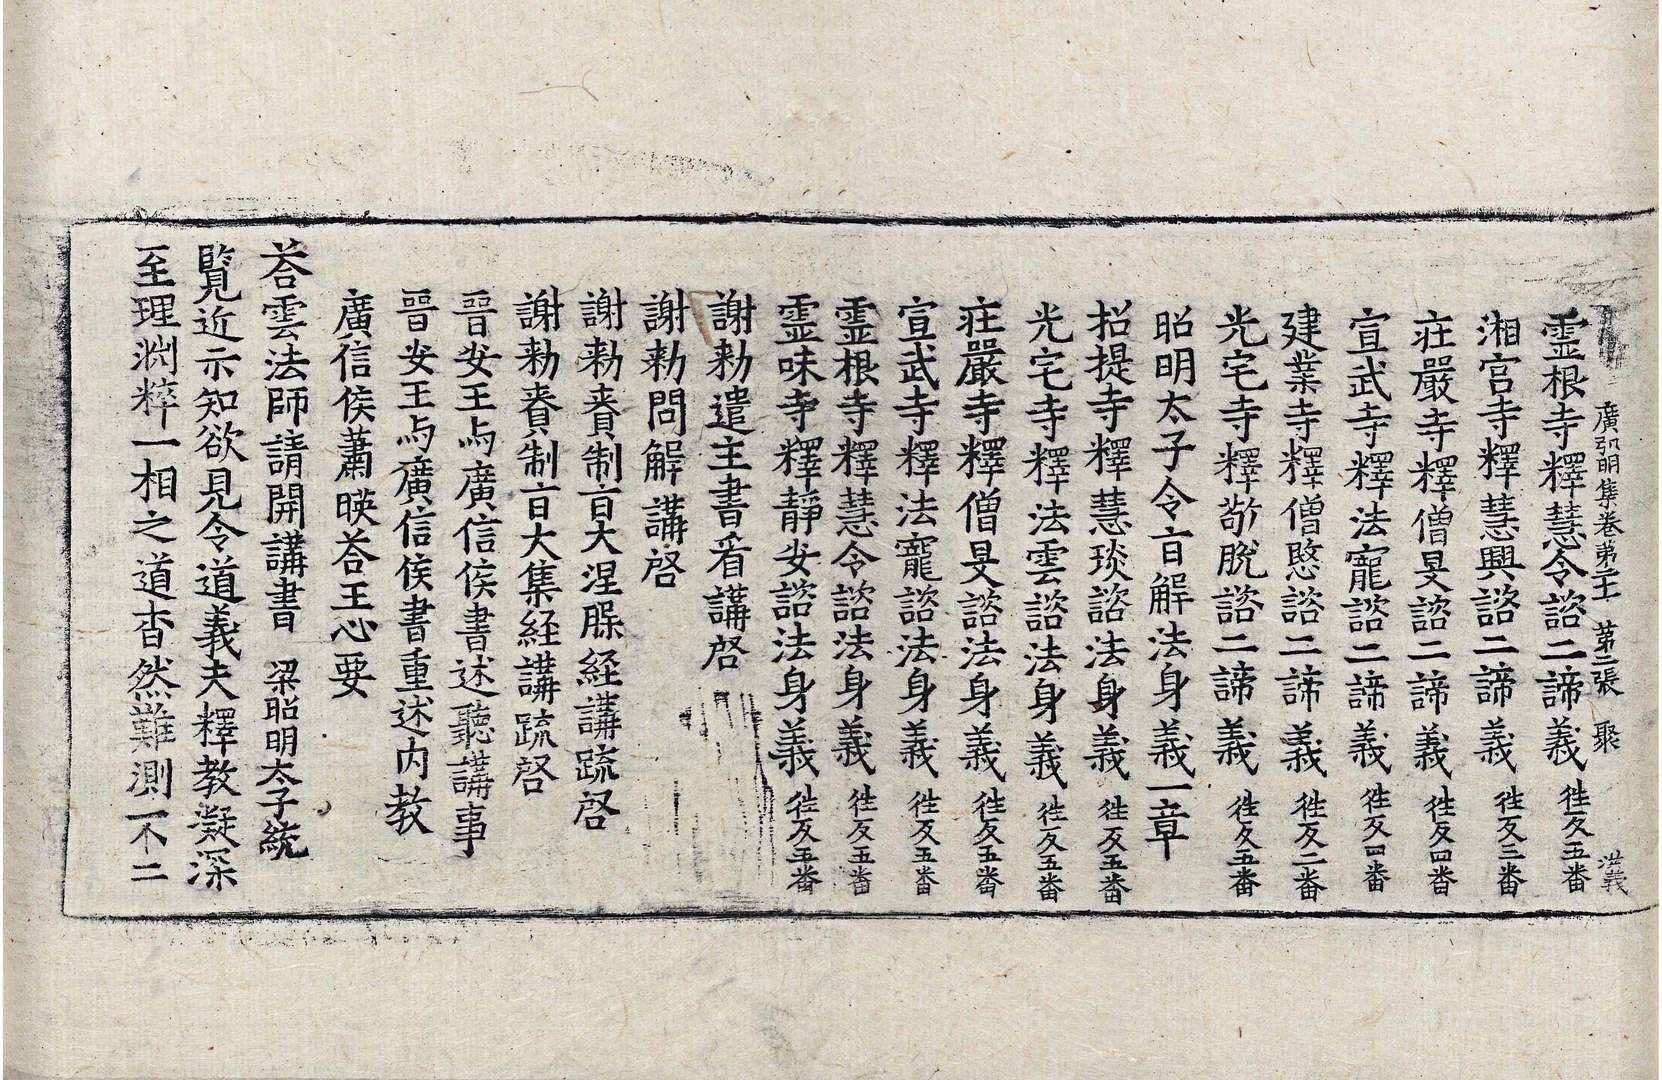 廣弘明集卷第二十 第二張 聚 洪義
霊根寺釋慧令諮二諦義 徃反五番
湘宮寺釋慧興諮二諦義 徃反三番
莊嚴寺釋僧旻諮二諦義 徃反四番
宣武寺釋法寵諮二諦義 徃反四番
建業寺釋僧愍諮二諦義 徃反二番
光宅寺釋敬脫諮二諦義 徃反五番
昭明太子令旨解法身義一章
招提寺釋慧琰諮法身義 徃反五番
光宅寺釋法雲諮法身義 徃反五番
莊嚴寺釋僧旻諮法身義 徃反五番
宣武寺釋法寵諮法身義 徃反五番
霊根寺釋慧令諮法身義 徃反五番
霊味寺釋靜安諮法身義 徃反五番
謝勑遣主書看講啓
謝勑問解講啓
謝勑賚制旨大涅槃経講䟽啓
謝勑賚制旨大集経講䟽啓
晉安王与廣信侯書述聽講事
晉安王与廣信侯書重述內教
廣信侯蕭暎荅王心要
荅雲法師請開講書 梁昭明太子統
覽近示知欲見令道義夫釋教凝深
至理渊粹一相之道杳然難測不二